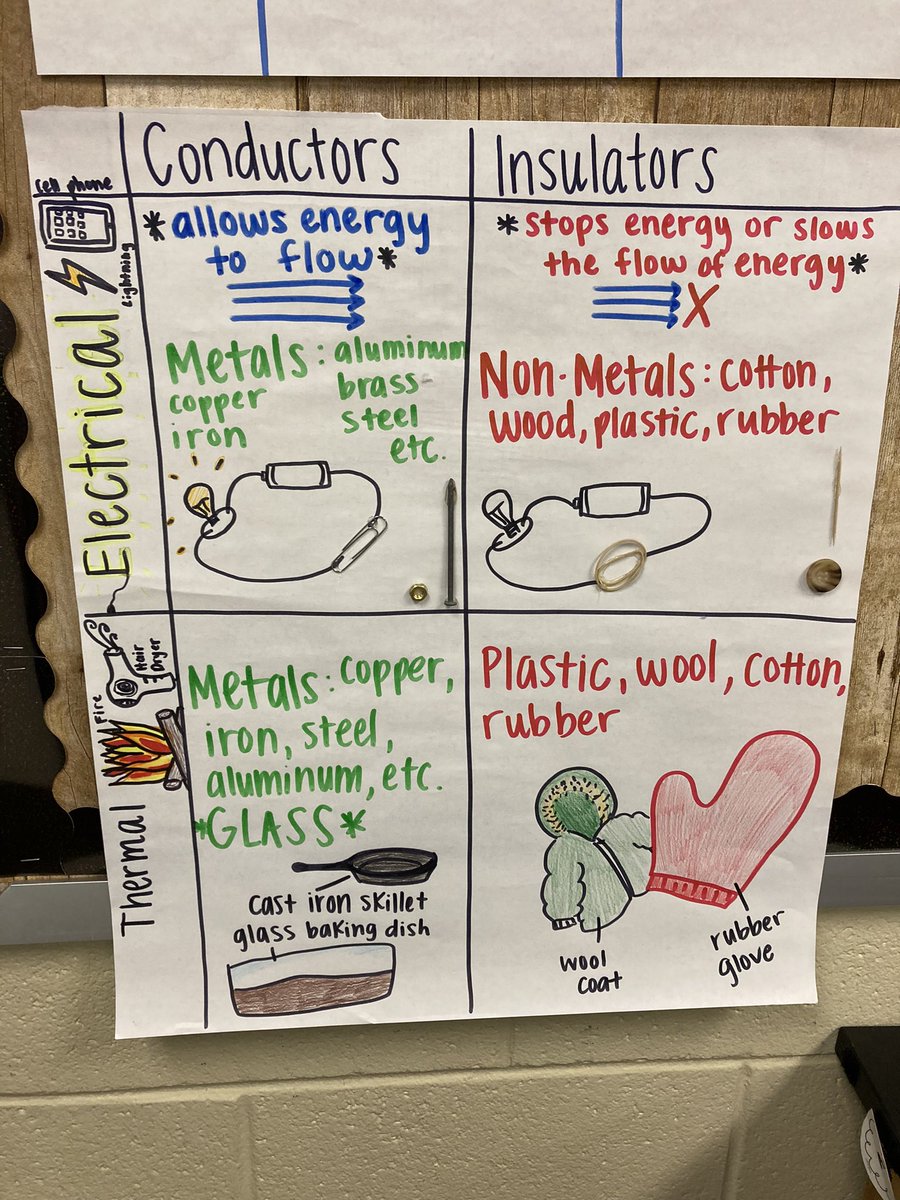 Conductors
Insulators
cell phone
Lightning
Electrical
*allows energy
to flow*
*stops energy or slows
the flow of energy*
X
Metals: aluminum
copper
brass
iron
steel
etc.
Non-Metals: cotton,
wood, plastic, rubber
Hair
Dryer
Fire
Thermal
Metals: copper,
iron, steel,
aluminum, etc.
*GLASS*
cast iron skillet
glass baking dish
Plastic, wool, cotton,
rubber
wool
coat
rubber
glove